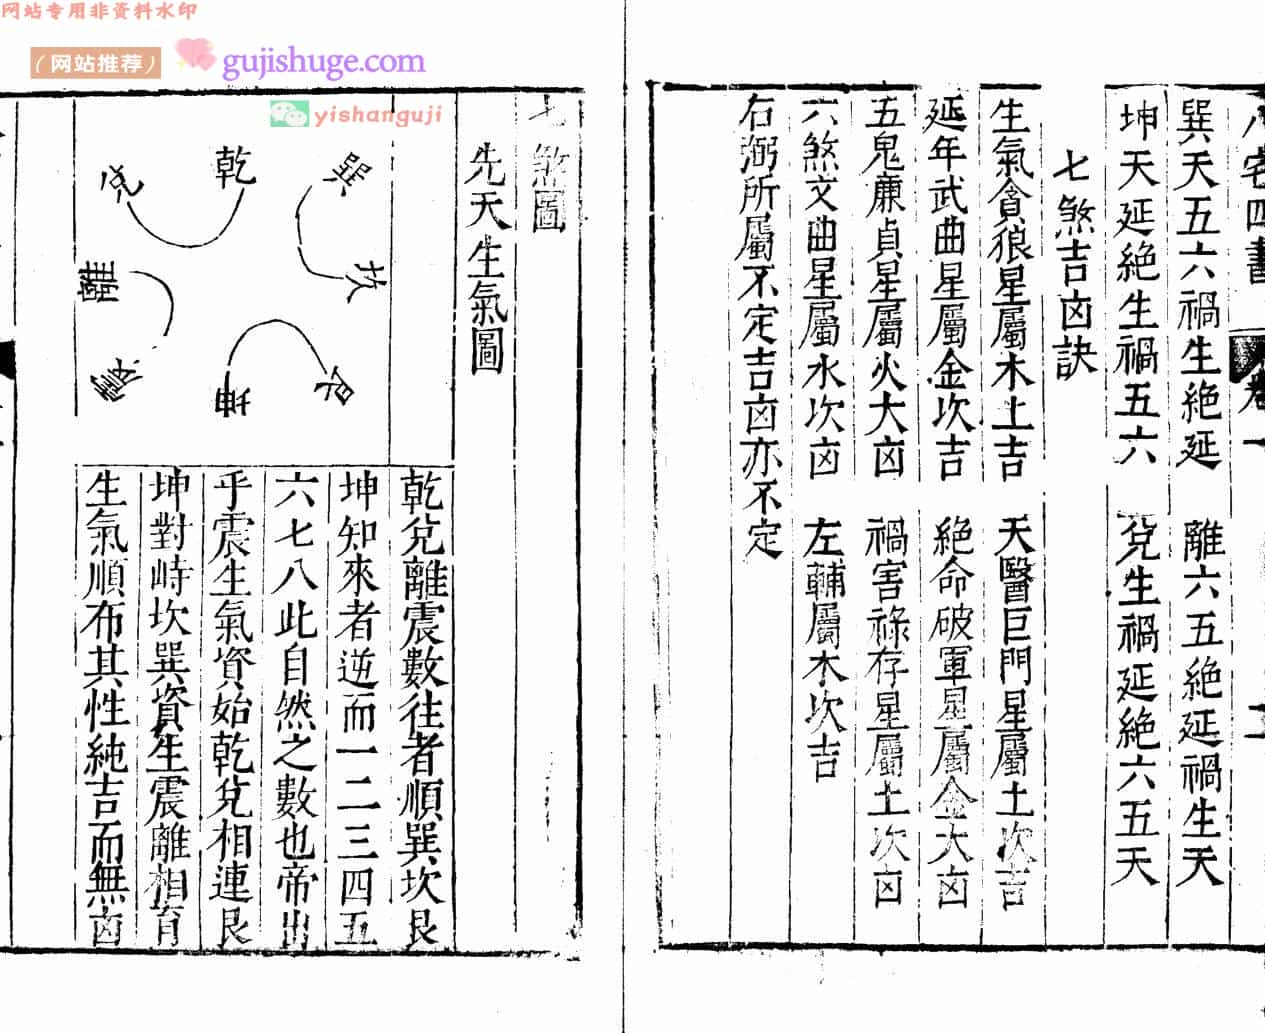 网站专用非资料水印
（网站推荐）
gujishuge.com
yishanguji
八宅四書
卷一
二
巽天五六禍生絶延　離六五絶延禍生天
坤天延絶生禍五六　兌生禍延絶六五天
七煞吉凶訣
生氣貪狼星屬木上吉　天醫巨門星屬土次吉
延年武曲星屬金次吉　絶命破軍星屬金大凶
五鬼廉貞星屬火大凶　禍害祿存星屬土次凶
六煞文曲星屬水次凶　左輔屬木次吉
右弼所屬不定吉凶亦不定
七煞圖
先天生氣圖
巽
乾
兌
坎
離
艮
坤
震
乾兌離震數往者順巽坎艮
坤知來者逆而一二三四五
六七八此自然之數也帝出
乎震生氣資始乾兌相連艮
坤對峙坎巽資生震離相育
生氣順布其性純吉而無凶